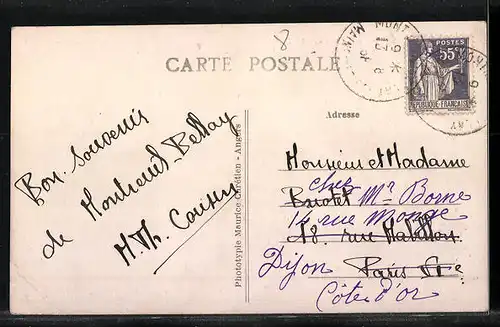 8
CARTE POSTALE
POSTES
55c
REPUBLIQUE FRANÇAISE
Bon Souvenir
de Montreuil-Bellay
M. Th.
Phototypie Maurice Chrétien - Angers
Adresse
Monsieur et Madame
chez Mr Borne
14 rue Monge
18, rue Mabillon
Dijon Paris
Côte d'or